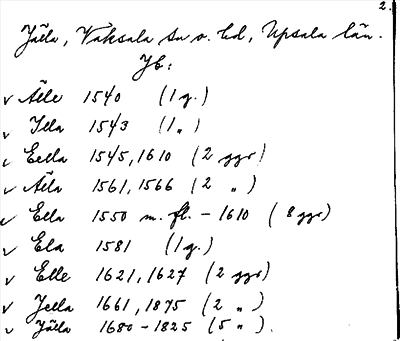 2.
Jälla, Vaksala sn o. hd, Upsala län.
Jb:
v Älle 1540 (1 g.)
v Iella 1543 (1 „)
v Eella 1545, 1610 (2 ggr)
v Älla 1561, 1566 (2 „)
v Ella 1550 m. fl. - 1610 (8 ggr)
v Ela 1581 (1 g.)
v Elle 1621, 1627 (2 ggr)
v Jella 1661, 1875 (2 „)
v Jälla 1680 - 1825 (5 „).